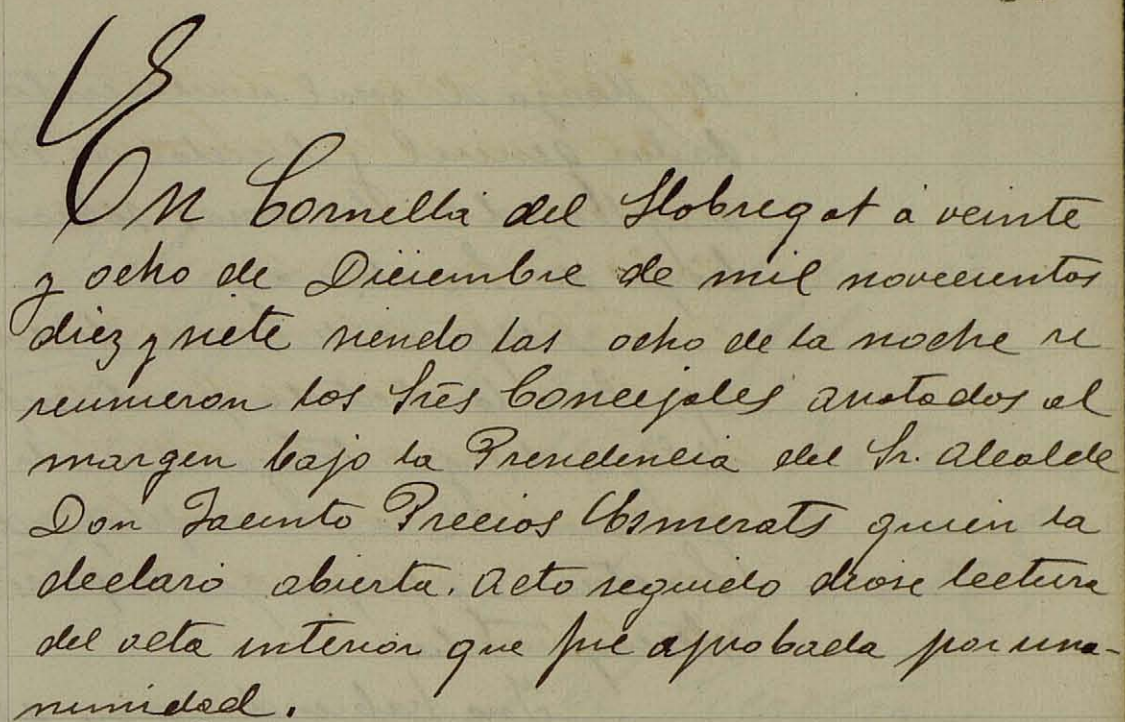 En Cornellá del Llobregat á veinte
y ocho de Diciembre de mil novecientos
diez y siete siendo las ocho de la noche se
reunieron los Sres Concejales anotados al
margen bajo la Presidencia del Sr. Alcalde
Don Jacinto Precios Esmerats quien la
declaró abierta. Acto seguido diose lectura
del acta interior que fué aprobada por una-
nimidad.